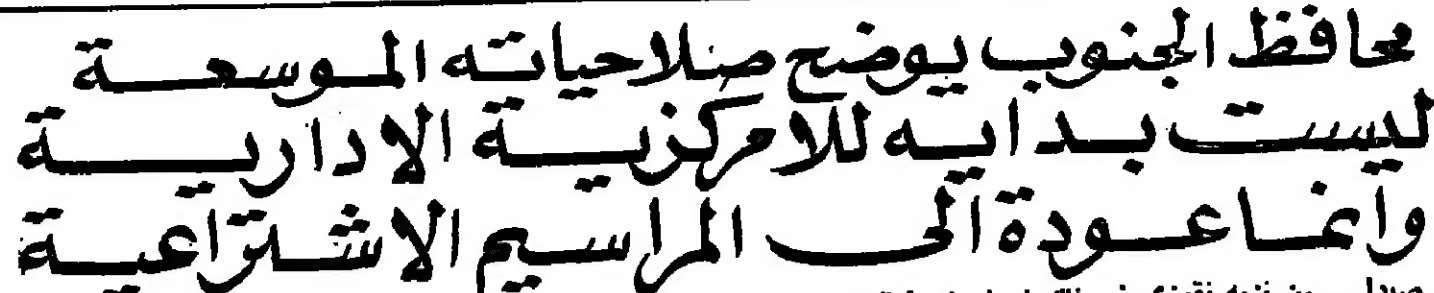 محافظ الجنوب يوضح صلاحياته الموسعة
ليست بدايه للامركزية الادارية
وانما عودة الى المراسيم الاشتراعية